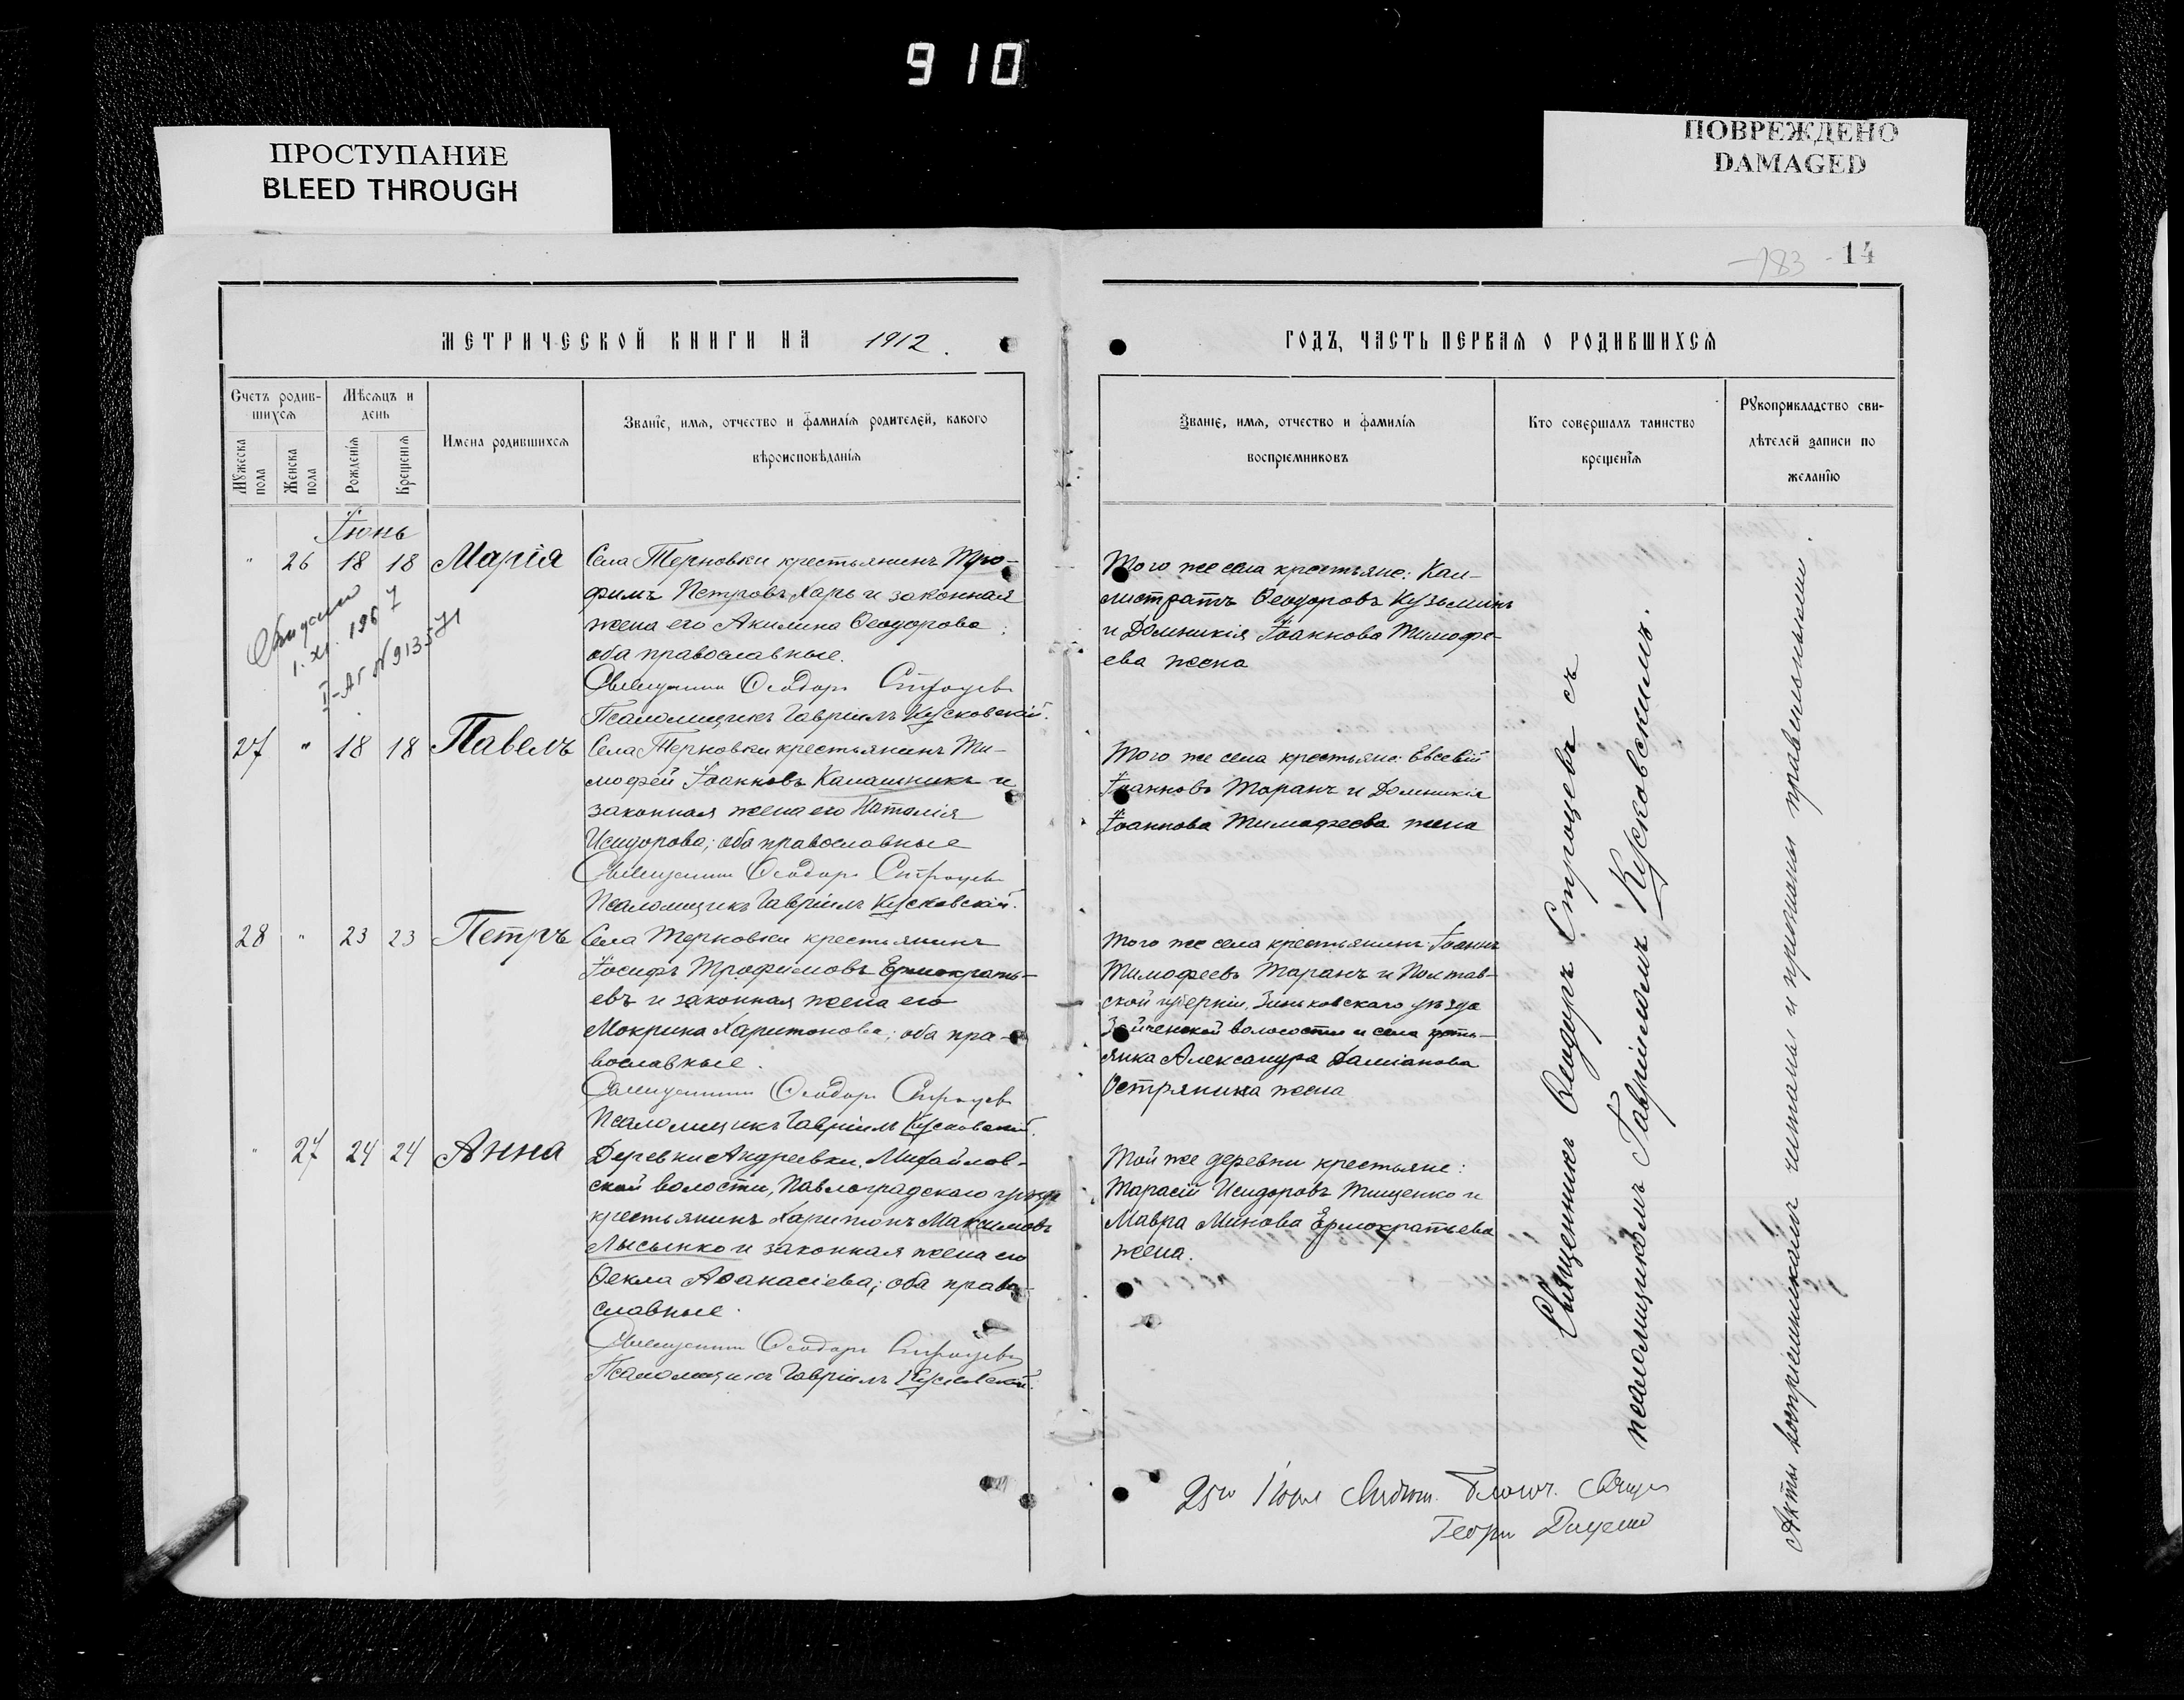 910
ПРОСТУПАНИЕ
BLEED THROUGH
ПОВРЕЖДЕНО
DAMAGED
783 - 14
МЕТРИЧЕСКОЙ КНИГИ НА 1912.
Счетъ родившихся
Мужеска пола
Женска пола
Мѣсяцъ и день
Рожденія
Крещенія
Имена родившихся
Званіе, имя, отчество и фамилія родителей, какого
вѣроисповѣданія
Іюнь
" 26 18 18 Марія
Села Терновки крестьянинъ Тро-
фимъ Петровъ Харь и законная
жена его Акилина Ѳеодорова;
оба православные.
Священникъ Ѳеодоръ Строцевъ
Псаломщикъ Гавріилъ Кусковскій.
1. XI. 1967
I-АГ № 913571
27 " 18 18 Павелъ
Села Терновки крестьянинъ Ти-
мофей Іоанновъ Калашникъ и
законная жена его Наталія
Исидорова; оба православные
Священникъ Ѳеодоръ Строцевъ
Псаломщикъ Гавріилъ Кусковскій.
28 " 23 23 Петръ
Села Терновки крестьянинъ
Іосифъ Трофимовъ Ермократь-
евъ и законная жена его
Мокрина Харитонова; оба пра-
вославные.
Священникъ Ѳеодоръ Строцевъ
Псаломщикъ Гавріилъ Кусковскій.
" 27 24 24 Анна
Деревни Андреевки, Михайлов-
ской волости, Павлоградскаго уѣзда
крестьянинъ Харитонъ Максимовъ
Лысенко и законная жена его
Ѳекла Аѳанасіева; оба право-
славные.
Священникъ Ѳеодоръ Строцевъ
Псаломщикъ Гавріилъ Кусковскій.
ГОДЪ, ЧАСТЬ ПЕРВАЯ О РОДИВШИХСЯ
Званіе, имя, отчество и фамилія
воспріемниковъ
Кто совершалъ таинство
крещенія
Рукоприкладство сви-
дѣтелей записи по
желанію
Того же села крестьяне: Кал-
листратъ Ѳеодоровъ Кузьминъ
и Домникія Іоаннова Тимофе-
ева жена
Того же села крестьяне: Евсевій
Іоанновъ Таранъ и Домникія
Іоаннова Тимофеева жена
Того же села крестьянинъ Іоаннъ
Тимофеевъ Таранъ и Полтав-
ской губерніи, Зиньковскаго уѣзда
волости и села
Александра Даміанова
Остряница жена
Той же деревни крестьяне:
Тарасій Исидоровъ Тищенко и
Мавра Минова Ермократьева
жена.
Священникъ Ѳеодоръ Строцевъ съ
псаломщикомъ Гавріиломъ Кусковскимъ.
Акты воспріемниками читаны и признаны правильными.
25го Іюня